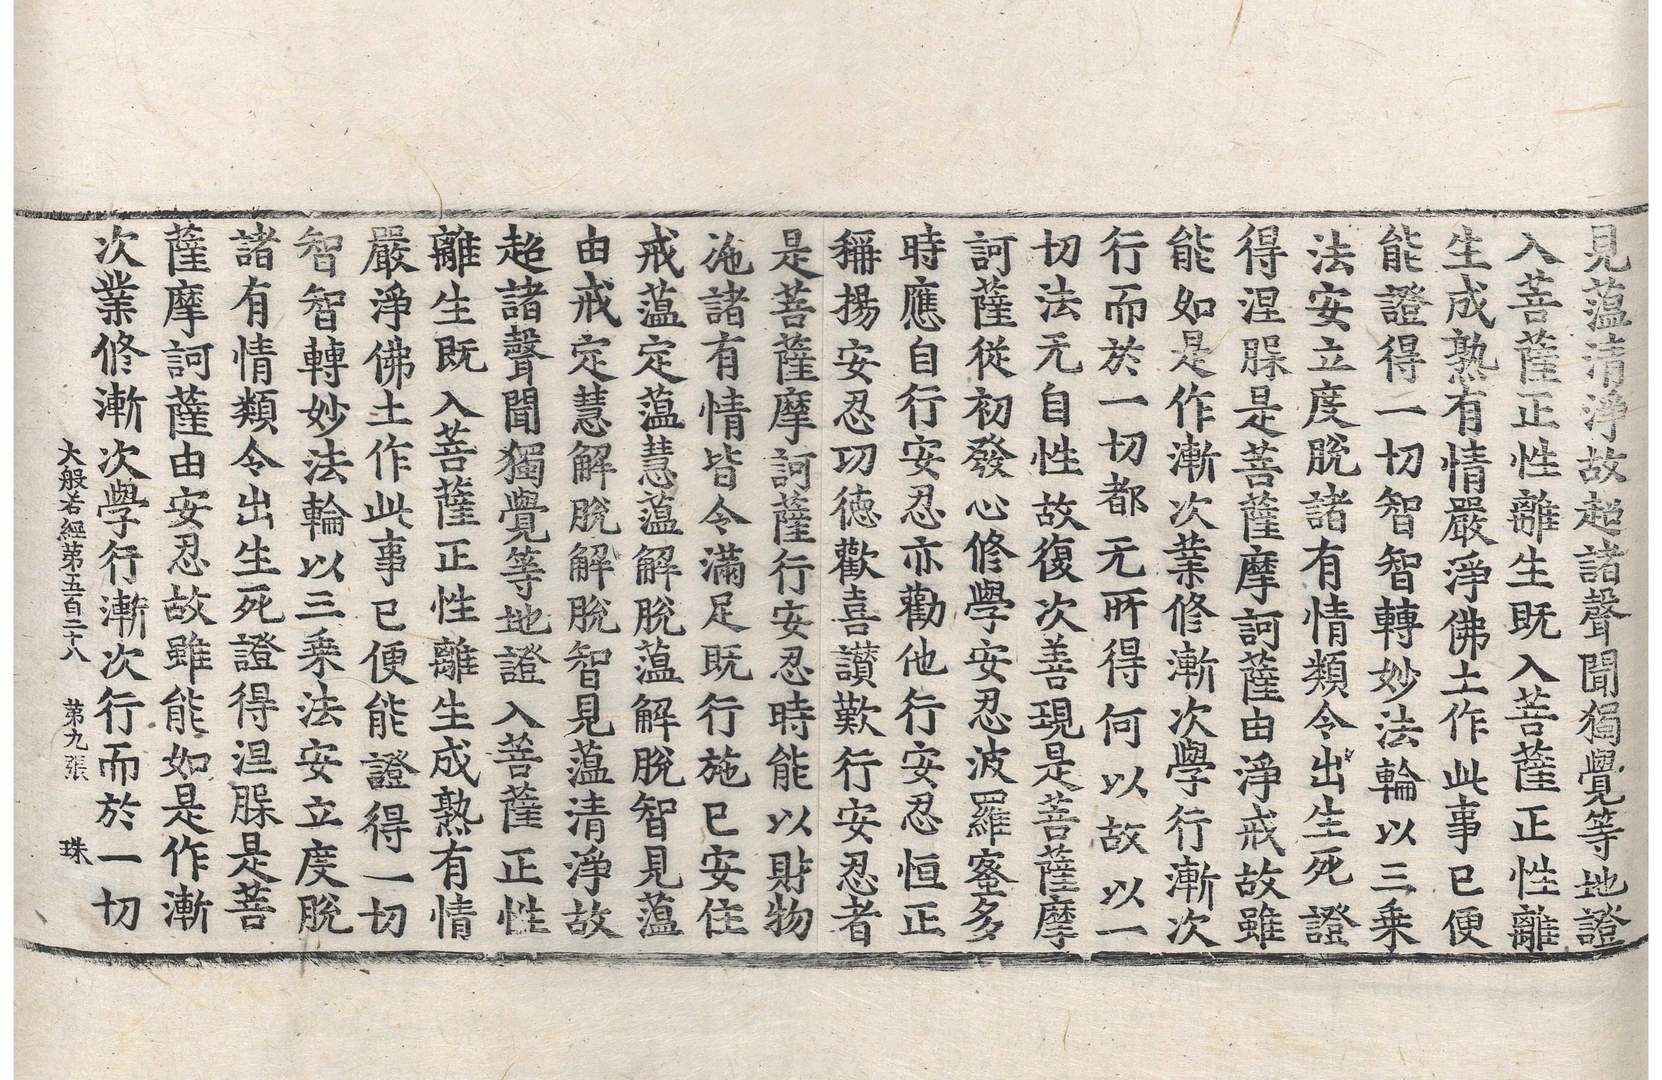 見蘊清淨故超諸聲聞獨覺等地證
入菩薩正性離生既入菩薩正性離
生成熟有情嚴淨佛土作此事已便
能證得一切智智轉妙法輪以三乘
法安立度脫諸有情類令出生死證
得涅槃是菩薩摩訶薩由淨戒故雖
能如是作漸次業修漸次學行漸次
行而於一切都无所得何以故以一
切法无自性故復次善現是菩薩摩
訶薩從初發心修學安忍波羅蜜多
時應自行安忍亦勸他行安忍恒正
稱揚安忍功德歡喜讃歎行安忍者
是菩薩摩訶薩行安忍時能以財物
施諸有情皆令滿足既行施已安住
戒蘊定蘊慧蘊解脫蘊解脫智見蘊
由戒定慧解脫解脫智見蘊清淨故
超諸聲聞獨覺等地證入菩薩正性
離生既入菩薩正性離生成熟有情
嚴淨佛土作此事已便能證得一切
智智轉妙法輪以三乘法安立度脫
諸有情類令出生死證得涅槃是菩
薩摩訶薩由安忍故雖能如是作漸
次業修漸次學行漸次行而於一切
大般若經第五百二十八 第九張 珠